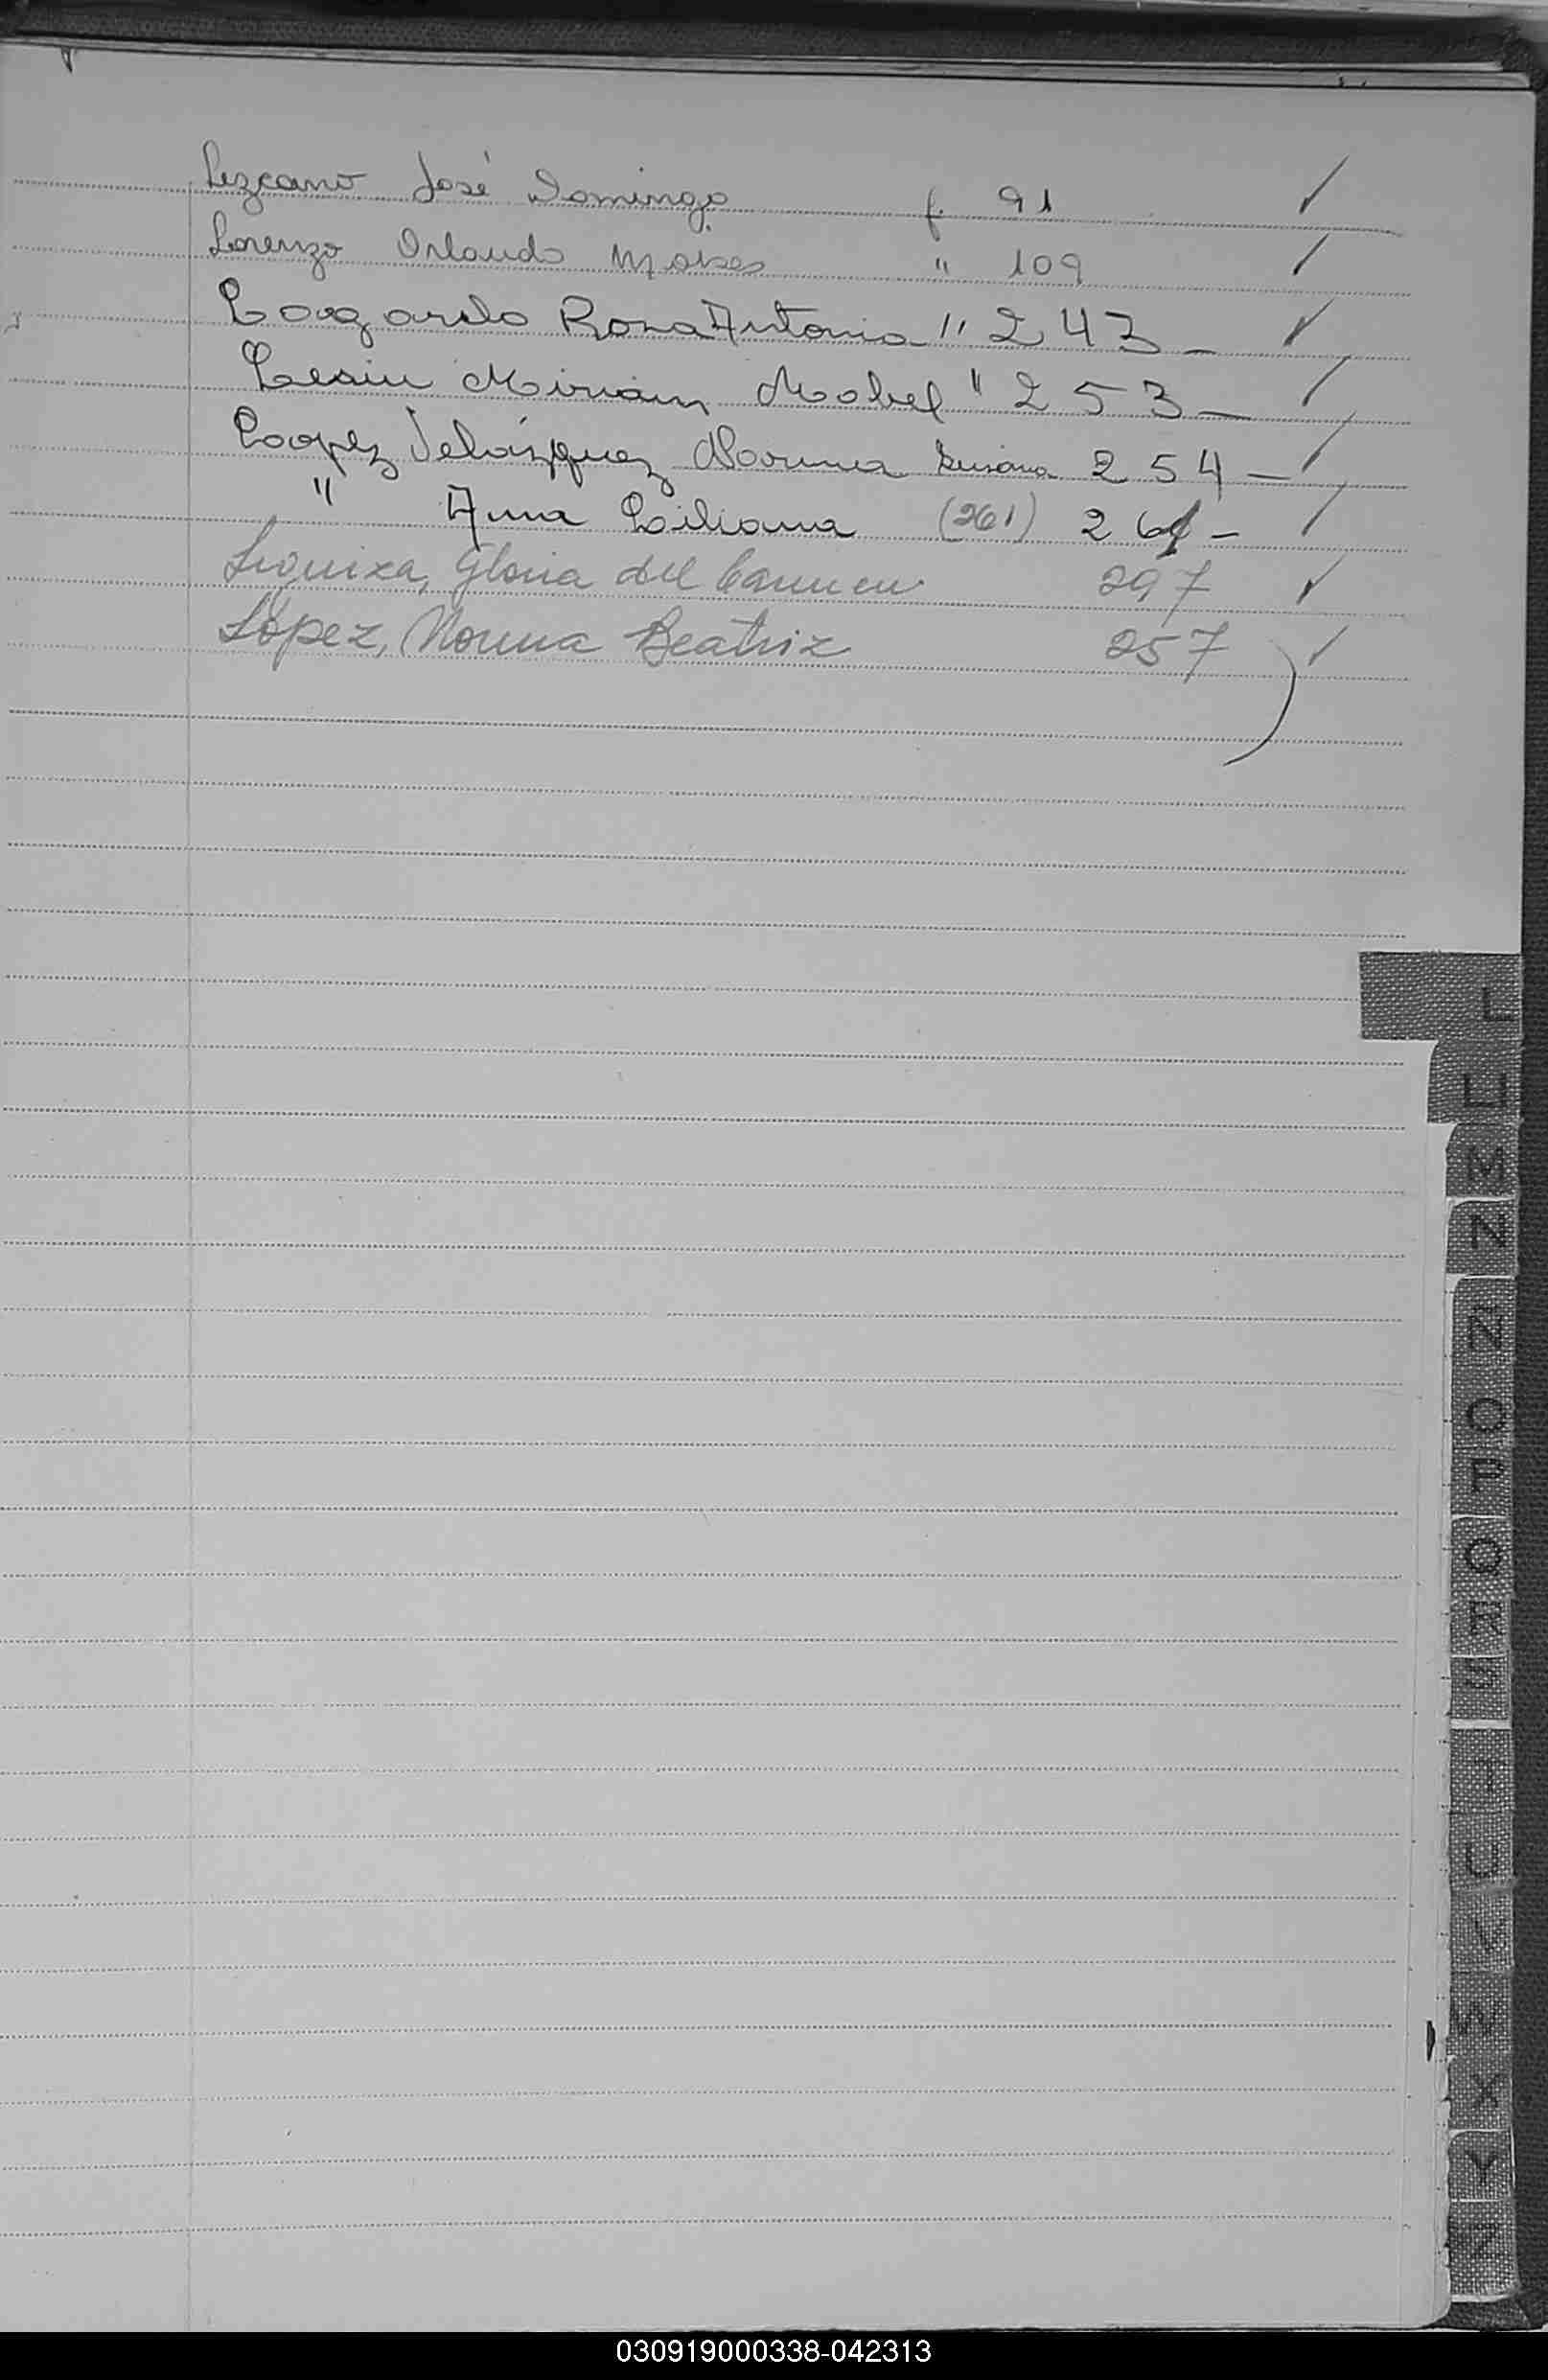 Lezcano José Domingo f. 91 ✓
Lorenzo Orlando Moises " 109 ✓
Logardo Rosa Antonia " 243 - ✓
Lesiu Miriam Mabel " 253 - ✓
Lopez Velázquez Norma Susana 254 - ✓
" Ana Liliana (261) 261 - ✓
Gloria del Carmen 297 ✓
López, Norma Beatriz 257 ✓
L
LL
M
N
Ñ
O
P
Q
R
S
T
U
V
W
X
Y
Z
030919000338-042313